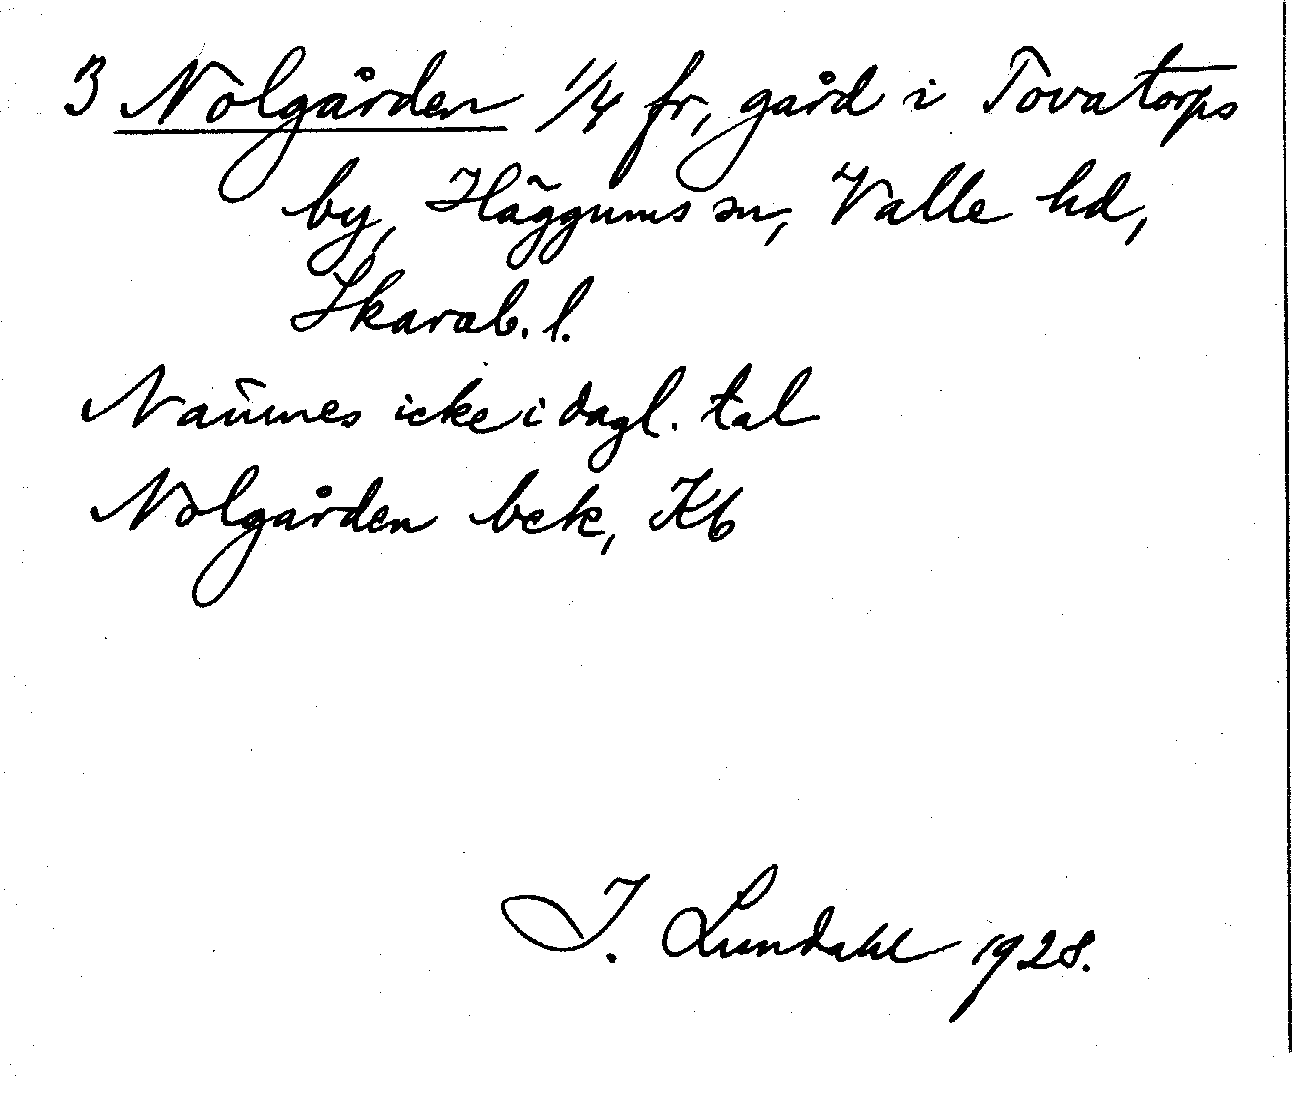 3 Nolgården 1/4 fr, gård i Tovatorps
by, Häggums sn, Valle hd,
Skarab. l.
Namnes icke i dagl. tal
Nolgården bek, Kb
I. Lundahl 1928.